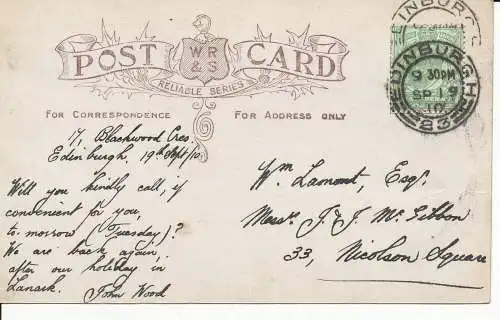 POST CARD
W R & S
RELIABLE SERIES
FOR CORRESPONDENCE
FOR ADDRESS ONLY
EDINBURGH
EDINBURGH
9 30PM
SP 19
10
17, Blackwood Cres.
Edinburgh, 19th Sept/10.
Will you kindly call, if
convenient for you,
to-morrow (Tuesday)?
We are back again,
after our holiday in
Lanark. John Wood
Wm Lamont, Esqr.
Messrs. J. & J. McGibbon
33, Nicolson Square